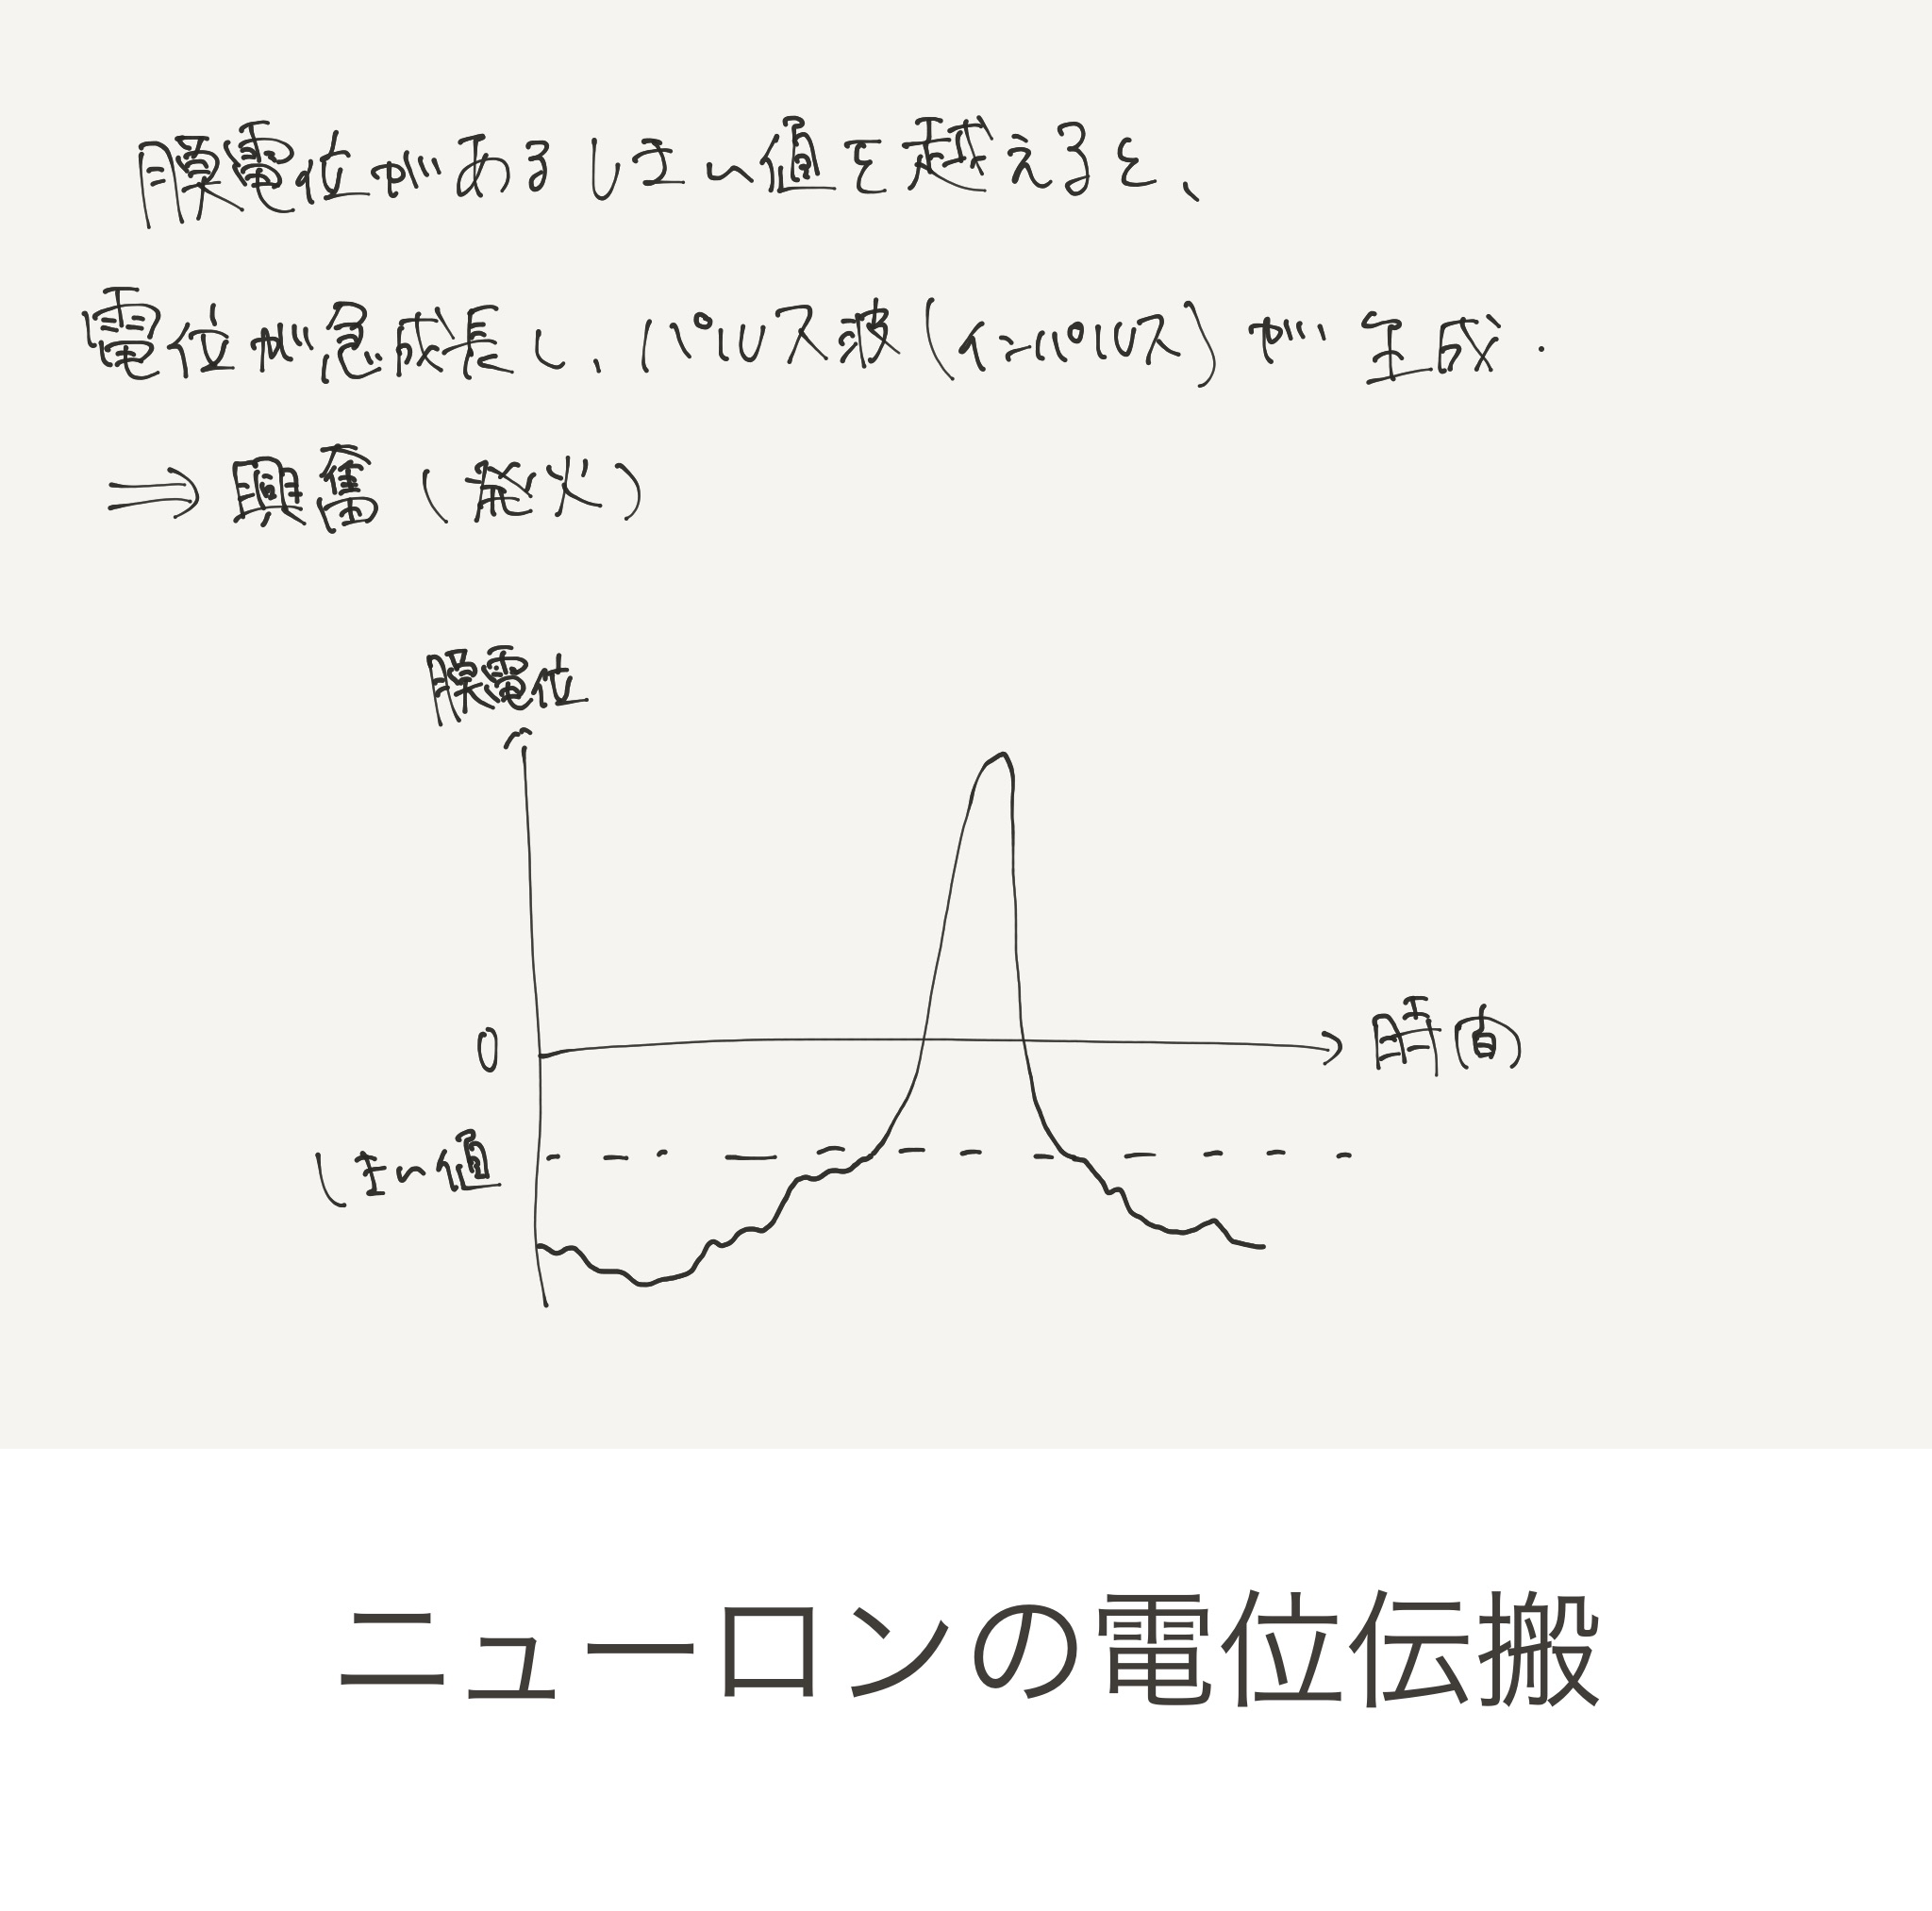 膜電位があるしきい値を越えると、
電位が急成長し、パルス波(インパルス)が生成.
⇒ 興奮（発火）
膜電位
0
時間
しきい値
ニューロンの電位伝搬